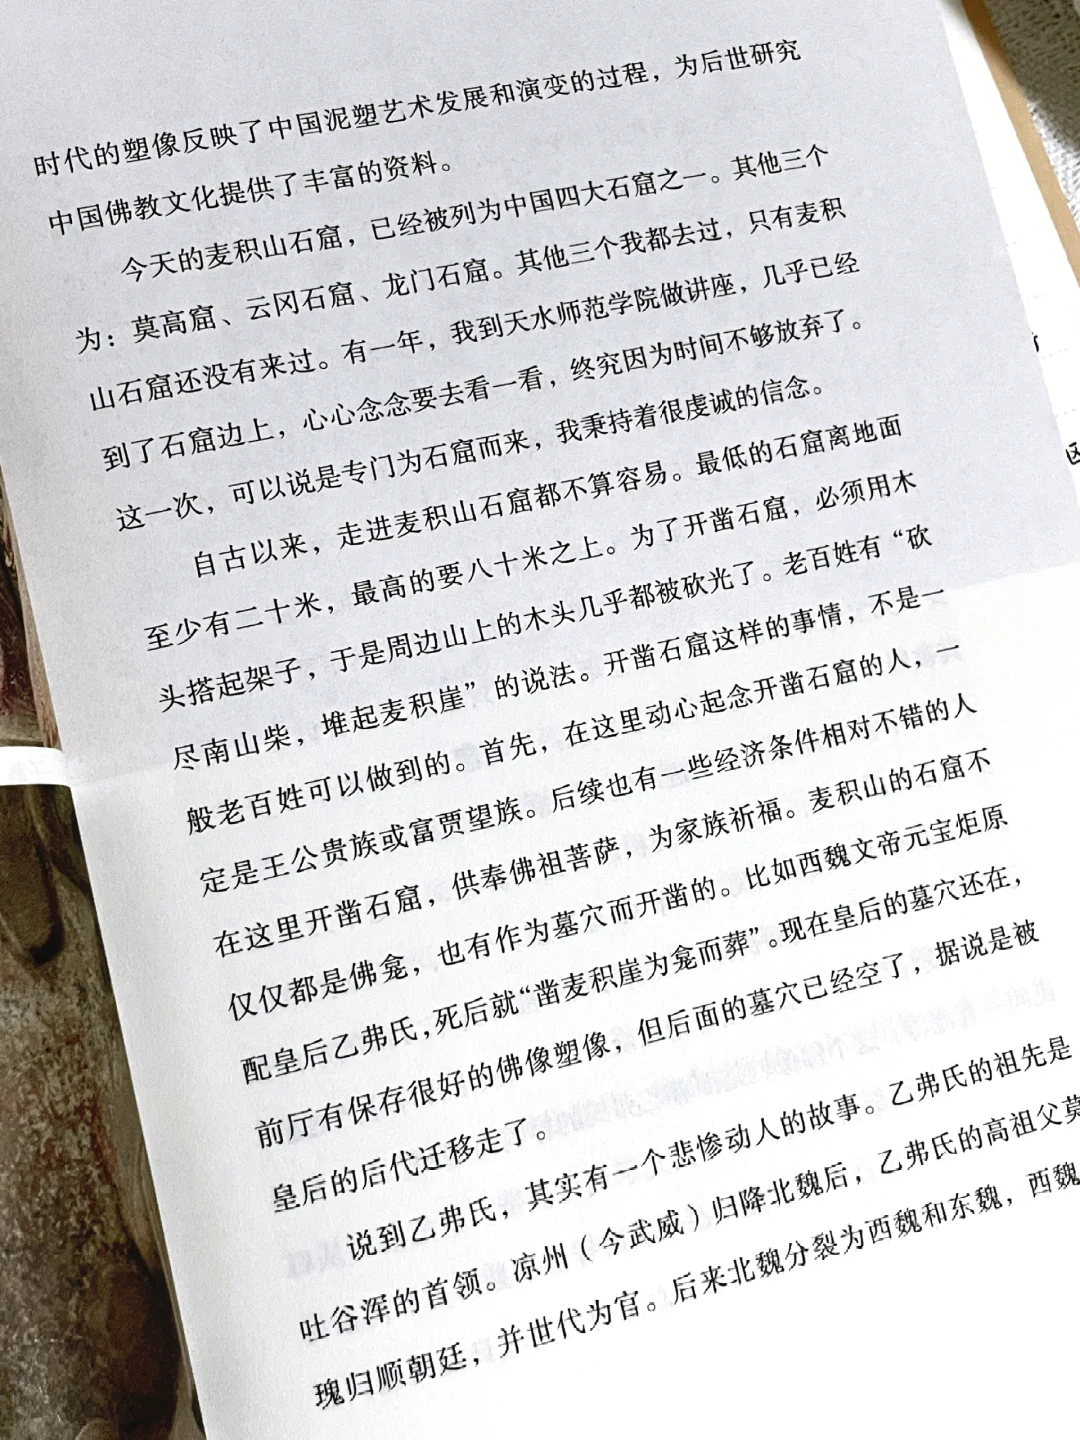 时代的塑像反映了中国泥塑艺术发展和演变的过程，为后世研究
中国佛教文化提供了丰富的资料。
今天的麦积山石窟，已经被列为中国四大石窟之一。其他三个
为：莫高窟、云冈石窟、龙门石窟。其他三个我都去过，只有麦积
山石窟还没有来过。有一年，我到天水师范学院做讲座，几乎已经
到了石窟边上，心心念念要去看一看，终究因为时间不够放弃了。
这一次，可以说是专门为石窟而来，我秉持着很虔诚的信念。
自古以来，走进麦积山石窟都不算容易。最低的石窟离地面
至少有二十米，最高的要八十米之上。为了开凿石窟，必须用木
头搭起架子，于是周边山上的木头几乎都被砍光了。老百姓有“砍
尽南山柴，堆起麦积崖”的说法。开凿石窟这样的事情，不是一
般老百姓可以做到的。首先，在这里动心起念开凿石窟的人，一
定是王公贵族或富贾望族。后续也有一些经济条件相对不错的人
在这里开凿石窟，供奉佛祖菩萨，为家族祈福。麦积山的石窟不
仅仅都是佛龛，也有作为墓穴而开凿的。比如西魏文帝元宝炬原
配皇后乙弗氏，死后就“凿麦积崖为龛而葬”。现在皇后的墓穴还在，
前厅有保存很好的佛像塑像，但后面的墓穴已经空了，据说是被
皇后的后代迁移走了。
说到乙弗氏，其实有一个悲惨动人的故事。乙弗氏的祖先是
吐谷浑的首领。凉州（今武威）归降北魏后，乙弗氏的高祖父莫
瑰归顺朝廷，并世代为官。后来北魏分裂为西魏和东魏，西魏